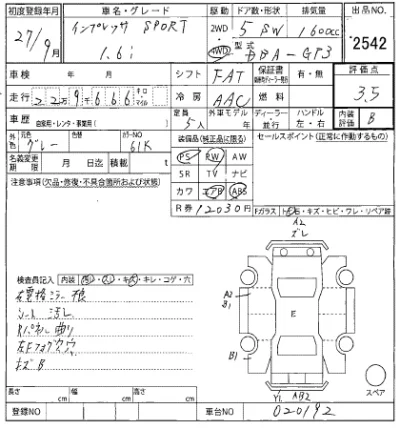 初度登録年月 車名・グレード 駆動 ドア数・形状 排気量 出品NO.
27/9月 インプレッサ SPORT 1.6i 2WD 4WD 5 SW 1600cc 2542
型式 DBA-GP3
車検 年 月 シフト FAT 保証書 有・無 評価点 3.5
走行 22万9千666 キロ・マイル 冷房 AAC 燃料
車歴 自家用・レンタ・事業用( ) 定員 5人 外車モデル 年 ディーラー・並行 ハンドル 左・右 内装評価 B
外色 元色 グレー 色替 カラーNO 61K 装備品(純正品に限る) セールスポイント(正常に作動するもの)
名義変更期限 月 日迄 積載 t PS PW AW
注意事項(欠品・修復・不具合箇所および状態) SR TV ナビ
カワ エアB ABS
R券 12030円
Fガラス トビ石・キズ・ヒビ・ワレ・リペア跡
A2
ズレ
検査員記入 内装 キレ・コゲ・穴
右電格ミラー 損
シート 汚レ
Rパネル 曲り
左Fフォグ
キズ B
A2
B1
E
B1
スペア
長さ cm 幅 cm 高さ cm
Y1 AB2
登録NO 車台NO 020192